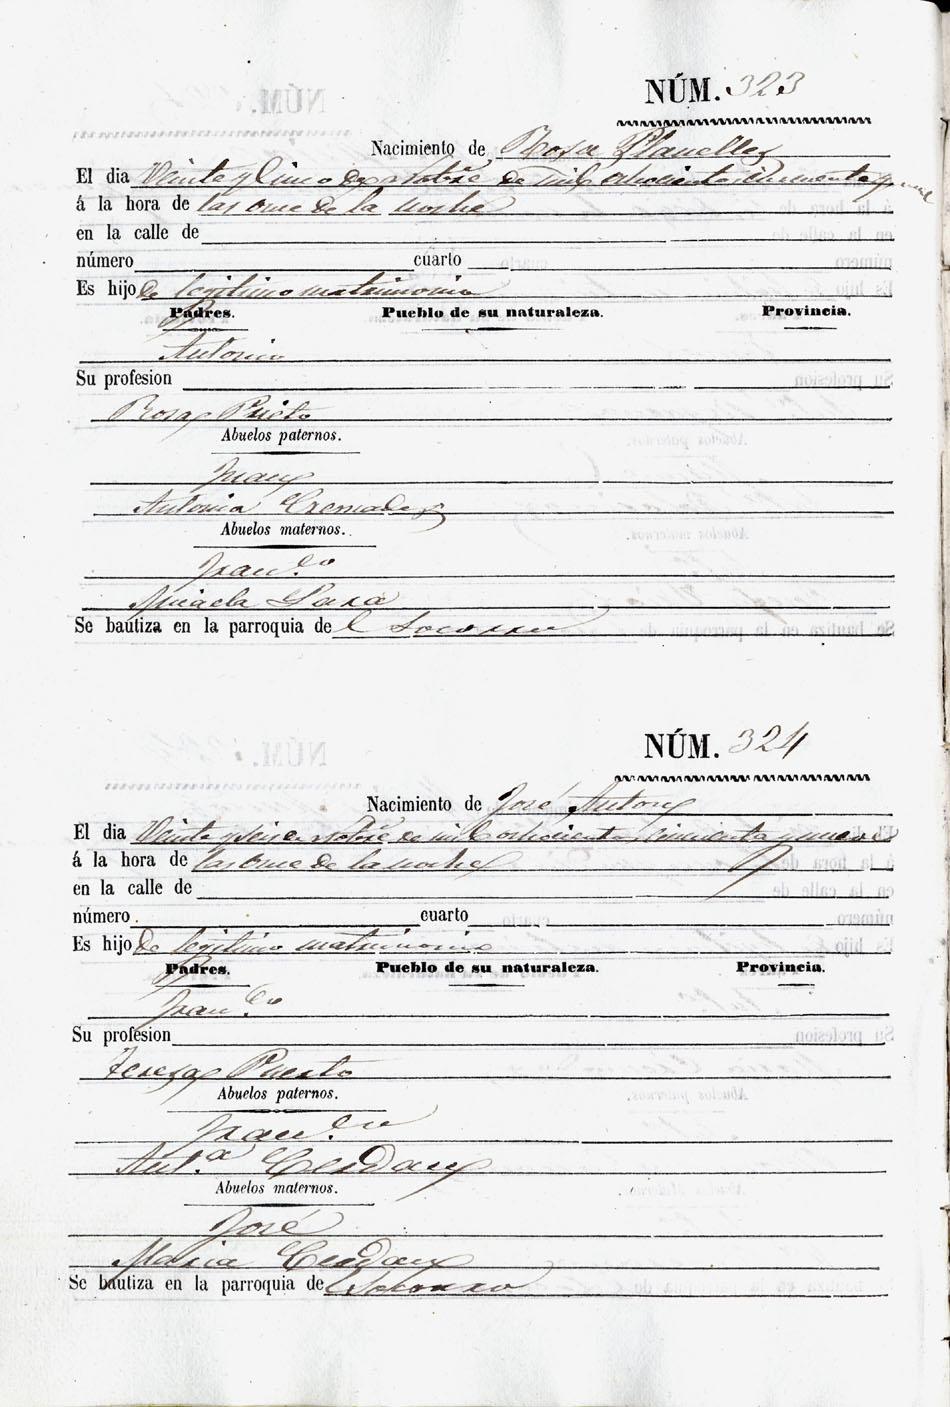 NÚM. 323
Nacimiento de Rosa Planelles
El dia Veinte y Cinco de de mil ochocientos cincuenta y nueve
á la hora de las once de la noche
en la calle de
número cuarto
Es hijo de legitimo matrimonio
Padres. Pueblo de su naturaleza. Provincia.
Antonio
Su profesion
Rosa Prieto
Abuelos paternos.
Juan
Antonia Cremades
Abuelos maternos.
Fran.co
Micaela Lara
Se bautiza en la parroquia del Socorro
NÚM. 324
Nacimiento de José Anton
El dia Veinte y seis de mil ochocientos cincuenta y nueve
á la hora de las once de la noche
en la calle de
número cuarto
Es hijo de legitimo matrimonio
Padres. Pueblo de su naturaleza. Provincia.
Fran.co
Su profesion
Teresa Puerto
Abuelos paternos.
Fran.co
Ant.a Cerdan
Abuelos maternos.
José
Maria Cerdan
Se bautiza en la parroquia de Socorro